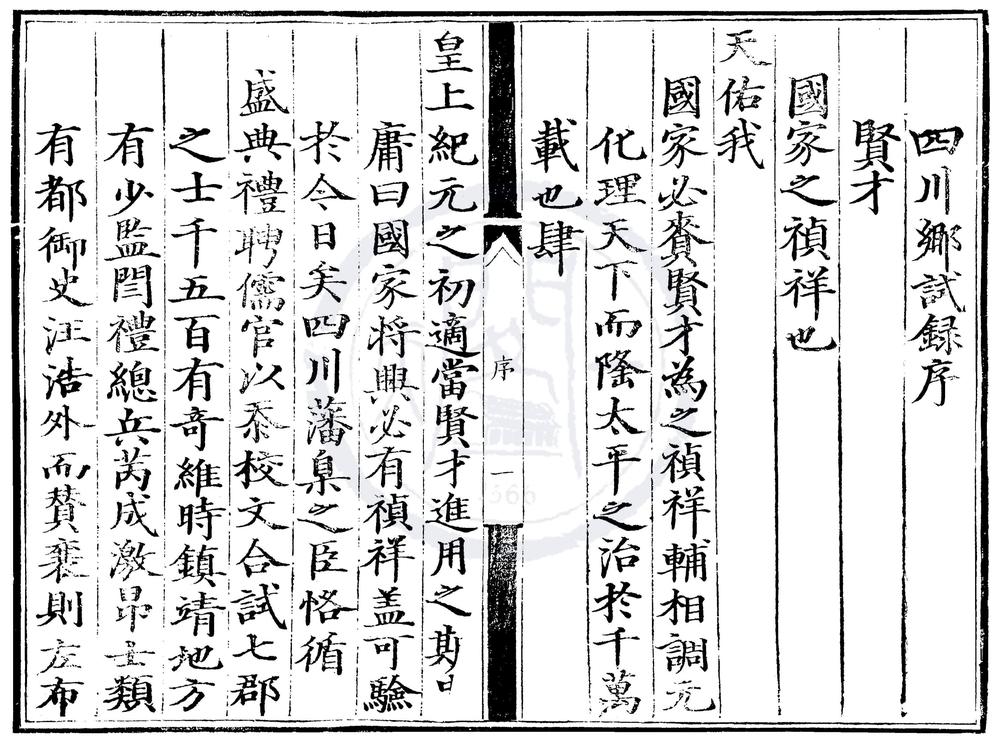 四川鄉試録序
賢才
國家之禎祥也
天佑我
國家必賚賢才為之禎祥輔相調元
化理天下而隆太平之治於千萬
載也肆
序
一
皇上紀元之初適當賢才進用之期日
庸曰國家將興必有禎祥盖可驗
於今日矣四川藩臬之臣恪循
盛典禮聘儒官以柰校文合試七郡
之士千五百有奇維時鎮靖地方
有少監閆禮總兵芮成激昂士類
有都御史汪浩外而賛襄則左布